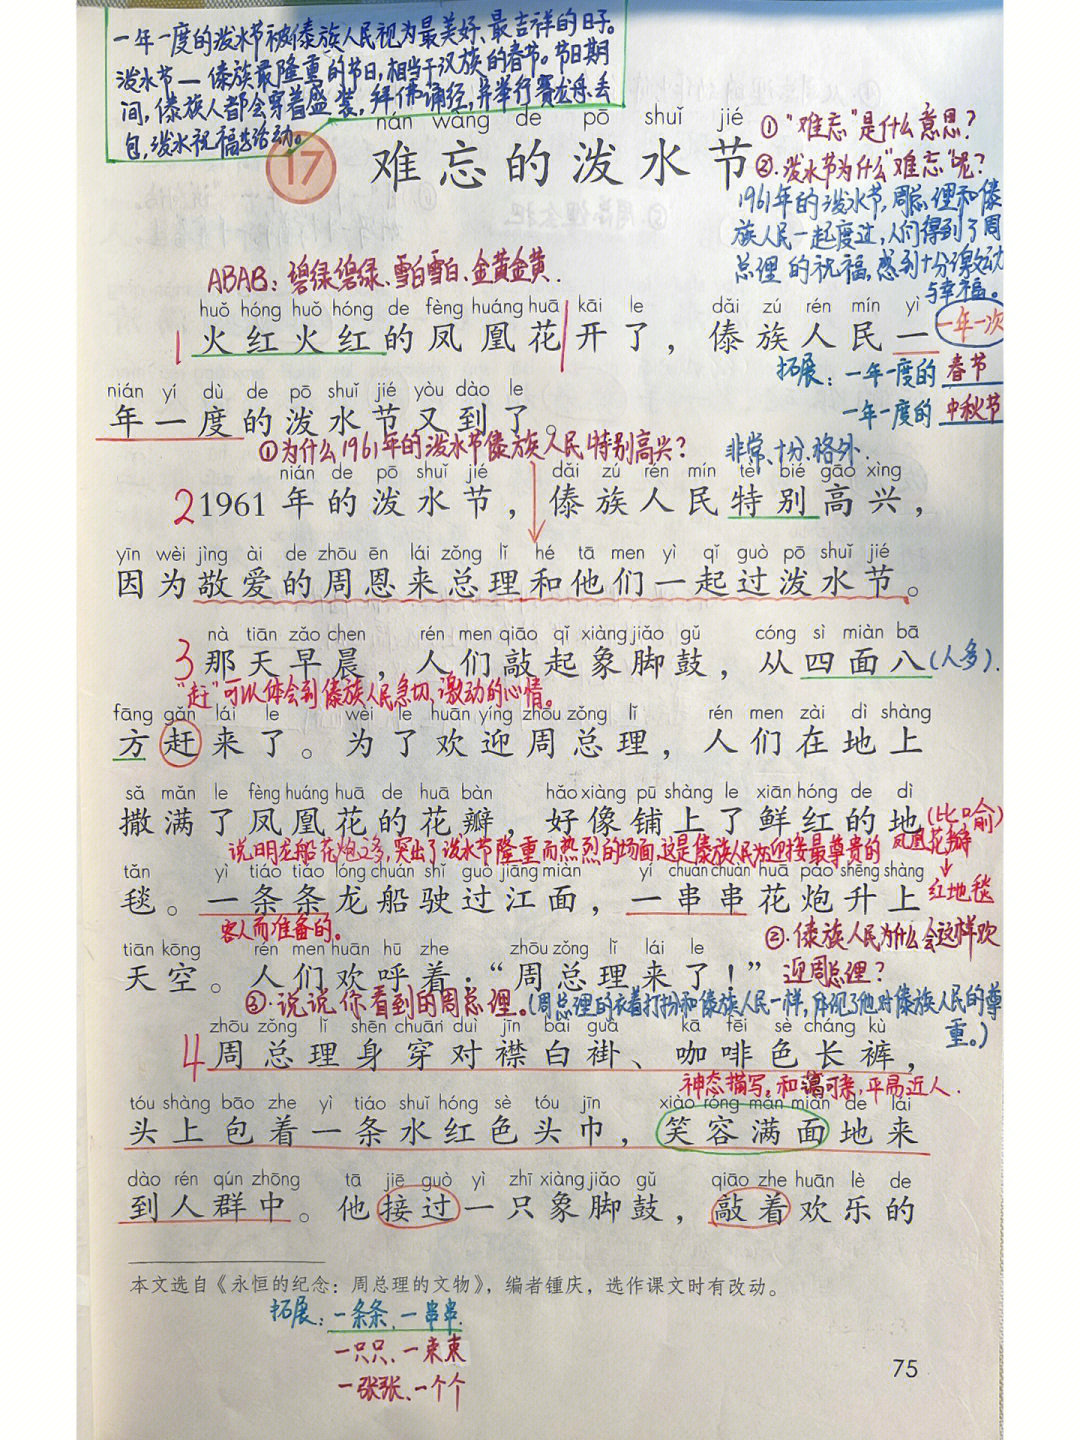 一年一度的泼水节被傣族人民视为最美好、最吉祥的日子。
泼水节—傣族最隆重的节日,相当于汉族的春节。节日期
间,傣族人都会穿着盛装,拜佛诵经,并举行赛龙舟、丢
包,泼水祝福等活动。
nán wàng de pō shuǐ jié
17 难忘的泼水节
①“难忘”是什么意思?
②.泼水节为什么“难忘”呢?
1961年的泼水节,周总理和傣
族人民一起度过,人们得到了周
总理的祝福,感到十分激动
与幸福。
ABAB:碧绿碧绿、雪白雪白、金黄金黄.
huǒ hóng huǒ hóng de fèng huáng huā kāi le dǎi zú rén mín yì
1 火红火红的凤凰花开了,傣族人民一
一年一次
拓展:一年一度的 春节
一年一度的 中秋节
nián yí dù de pō shuǐ jié yòu dào le
年一度的泼水节又到了。
①为什么1961年的泼水节傣族人民特别高兴?
非常、十分、格外.
nián de pō shuǐ jié dǎi zú rén mín tè bié gāo xìng
2 1961年的泼水节,傣族人民特别高兴,
yīn wèi jìng ài de zhōu ēn lái zǒng lǐ hé tā men yì qǐ guò pō shuǐ jié
因为敬爱的周恩来总理和他们一起过泼水节。
nà tiān zǎo chen rén men qiāo qǐ xiàng jiǎo gǔ cóng sì miàn bā
3 那天早晨,人们敲起象脚鼓,从四面八
(人多).
“赶”可以体会到傣族人民急切、激动的心情。
fāng gǎn lái le wèi le huān yíng zhōu zǒng lǐ rén men zài dì shàng
方赶来了。为了欢迎周总理,人们在地上
sǎ mǎn le fèng huáng huā de huā bàn hǎo xiàng pū shàng le xiān hóng de dì
撒满了凤凰花的花瓣,好像铺上了鲜红的地
(比喻)
凤凰花瓣
↓
红地毯
说明龙船花炮之多,突出了泼水节隆重而热烈的场面,这是傣族人民为迎接最尊贵的
客人而准备的。
tǎn yì tiáo tiáo lóng chuán shǐ guò jiāng miàn yí chuàn chuàn huā pào shēng shàng
毯。一条条龙船驶过江面,一串串花炮升上
②.傣族人民为什么会这样欢
迎周总理?
tiān kōng rén men huān hū zhe zhōu zǒng lǐ lái le
天空。人们欢呼着:“周总理来了!”
③.说说你看到的周总理。(周总理的衣着打扮和傣族人民一样,体现了他对傣族人民的尊
重。)
zhōu zǒng lǐ shēn chuān duì jīn bái guà kā fēi sè cháng kù
4 周总理身穿对襟白褂、咖啡色长裤,
神态描写。和蔼可亲,平易近人.
tóu shàng bāo zhe yì tiáo shuǐ hóng sè tóu jīn xiào róng mǎn miàn de lái
头上包着一条水红色头巾,笑容满面地来
dào rén qún zhōng tā jiē guò yì zhī xiàng jiǎo gǔ qiāo zhe huān lè de
到人群中。他接过一只象脚鼓,敲着欢乐的
本文选自《永恒的纪念:周总理的文物》,编者锺庆,选作课文时有改动。
拓展:一条条、一串串.
一只只、一束束
一张张、一个个
75